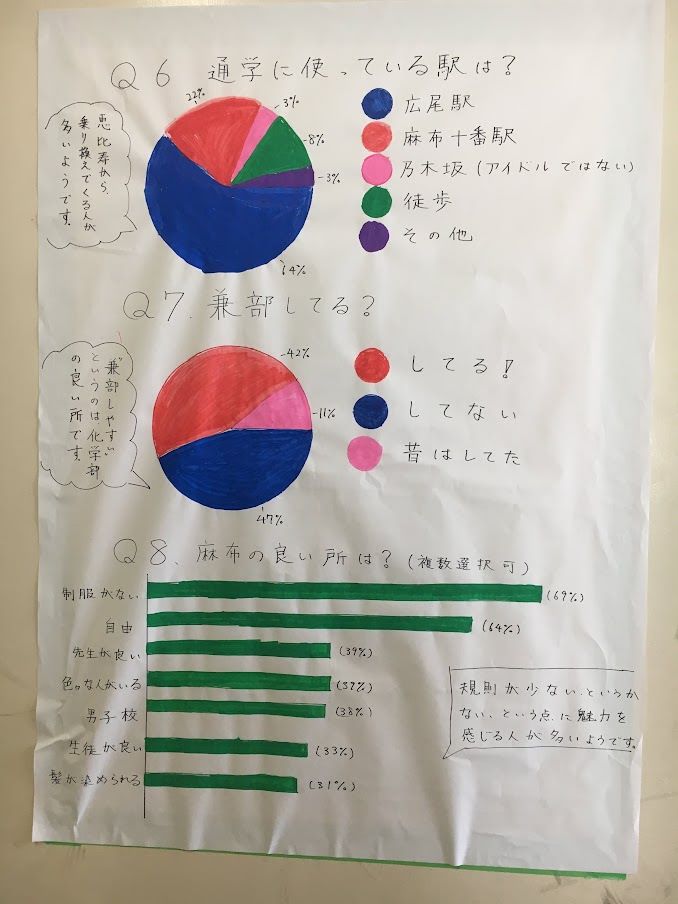 Q6 通学に使っている駅は?
恵比寿から、
乗り換えてくる人が
多いようです。
22%
-3%
-8%
-3%
64%
広尾駅
麻布十番駅
乃木坂(アイドルではない)
徒歩
その他
Q7.兼部してる?
"兼部しやすい"
というのは、化学部
の良い所です。
-42%
-11%
47%
してる!
してない
昔はしてた
Q8、麻布の良い所は?(複数選択可)
制服がない (69%)
自由 (64%)
先生が良い (39%)
色々な人がいる
男子校
生徒が良い (33%)
髪が染められる (31%)
規則が少ない、というか
ない、という点に魅力を
感じる人が多いようです。